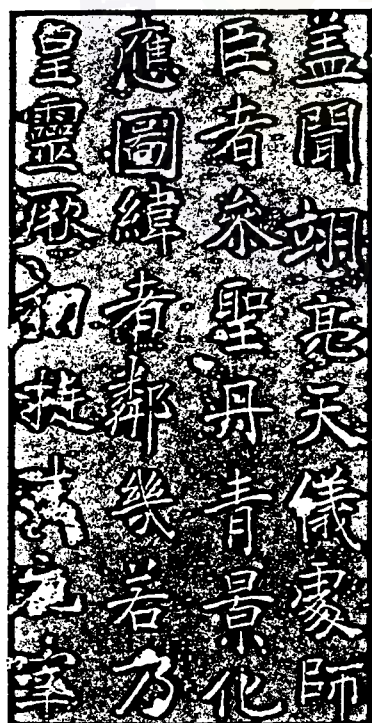 盖聞翊亮天儀處師
臣者叅聖丹青景化
應圖緯者鄰幾若乃
皇靈厥初挺元宰